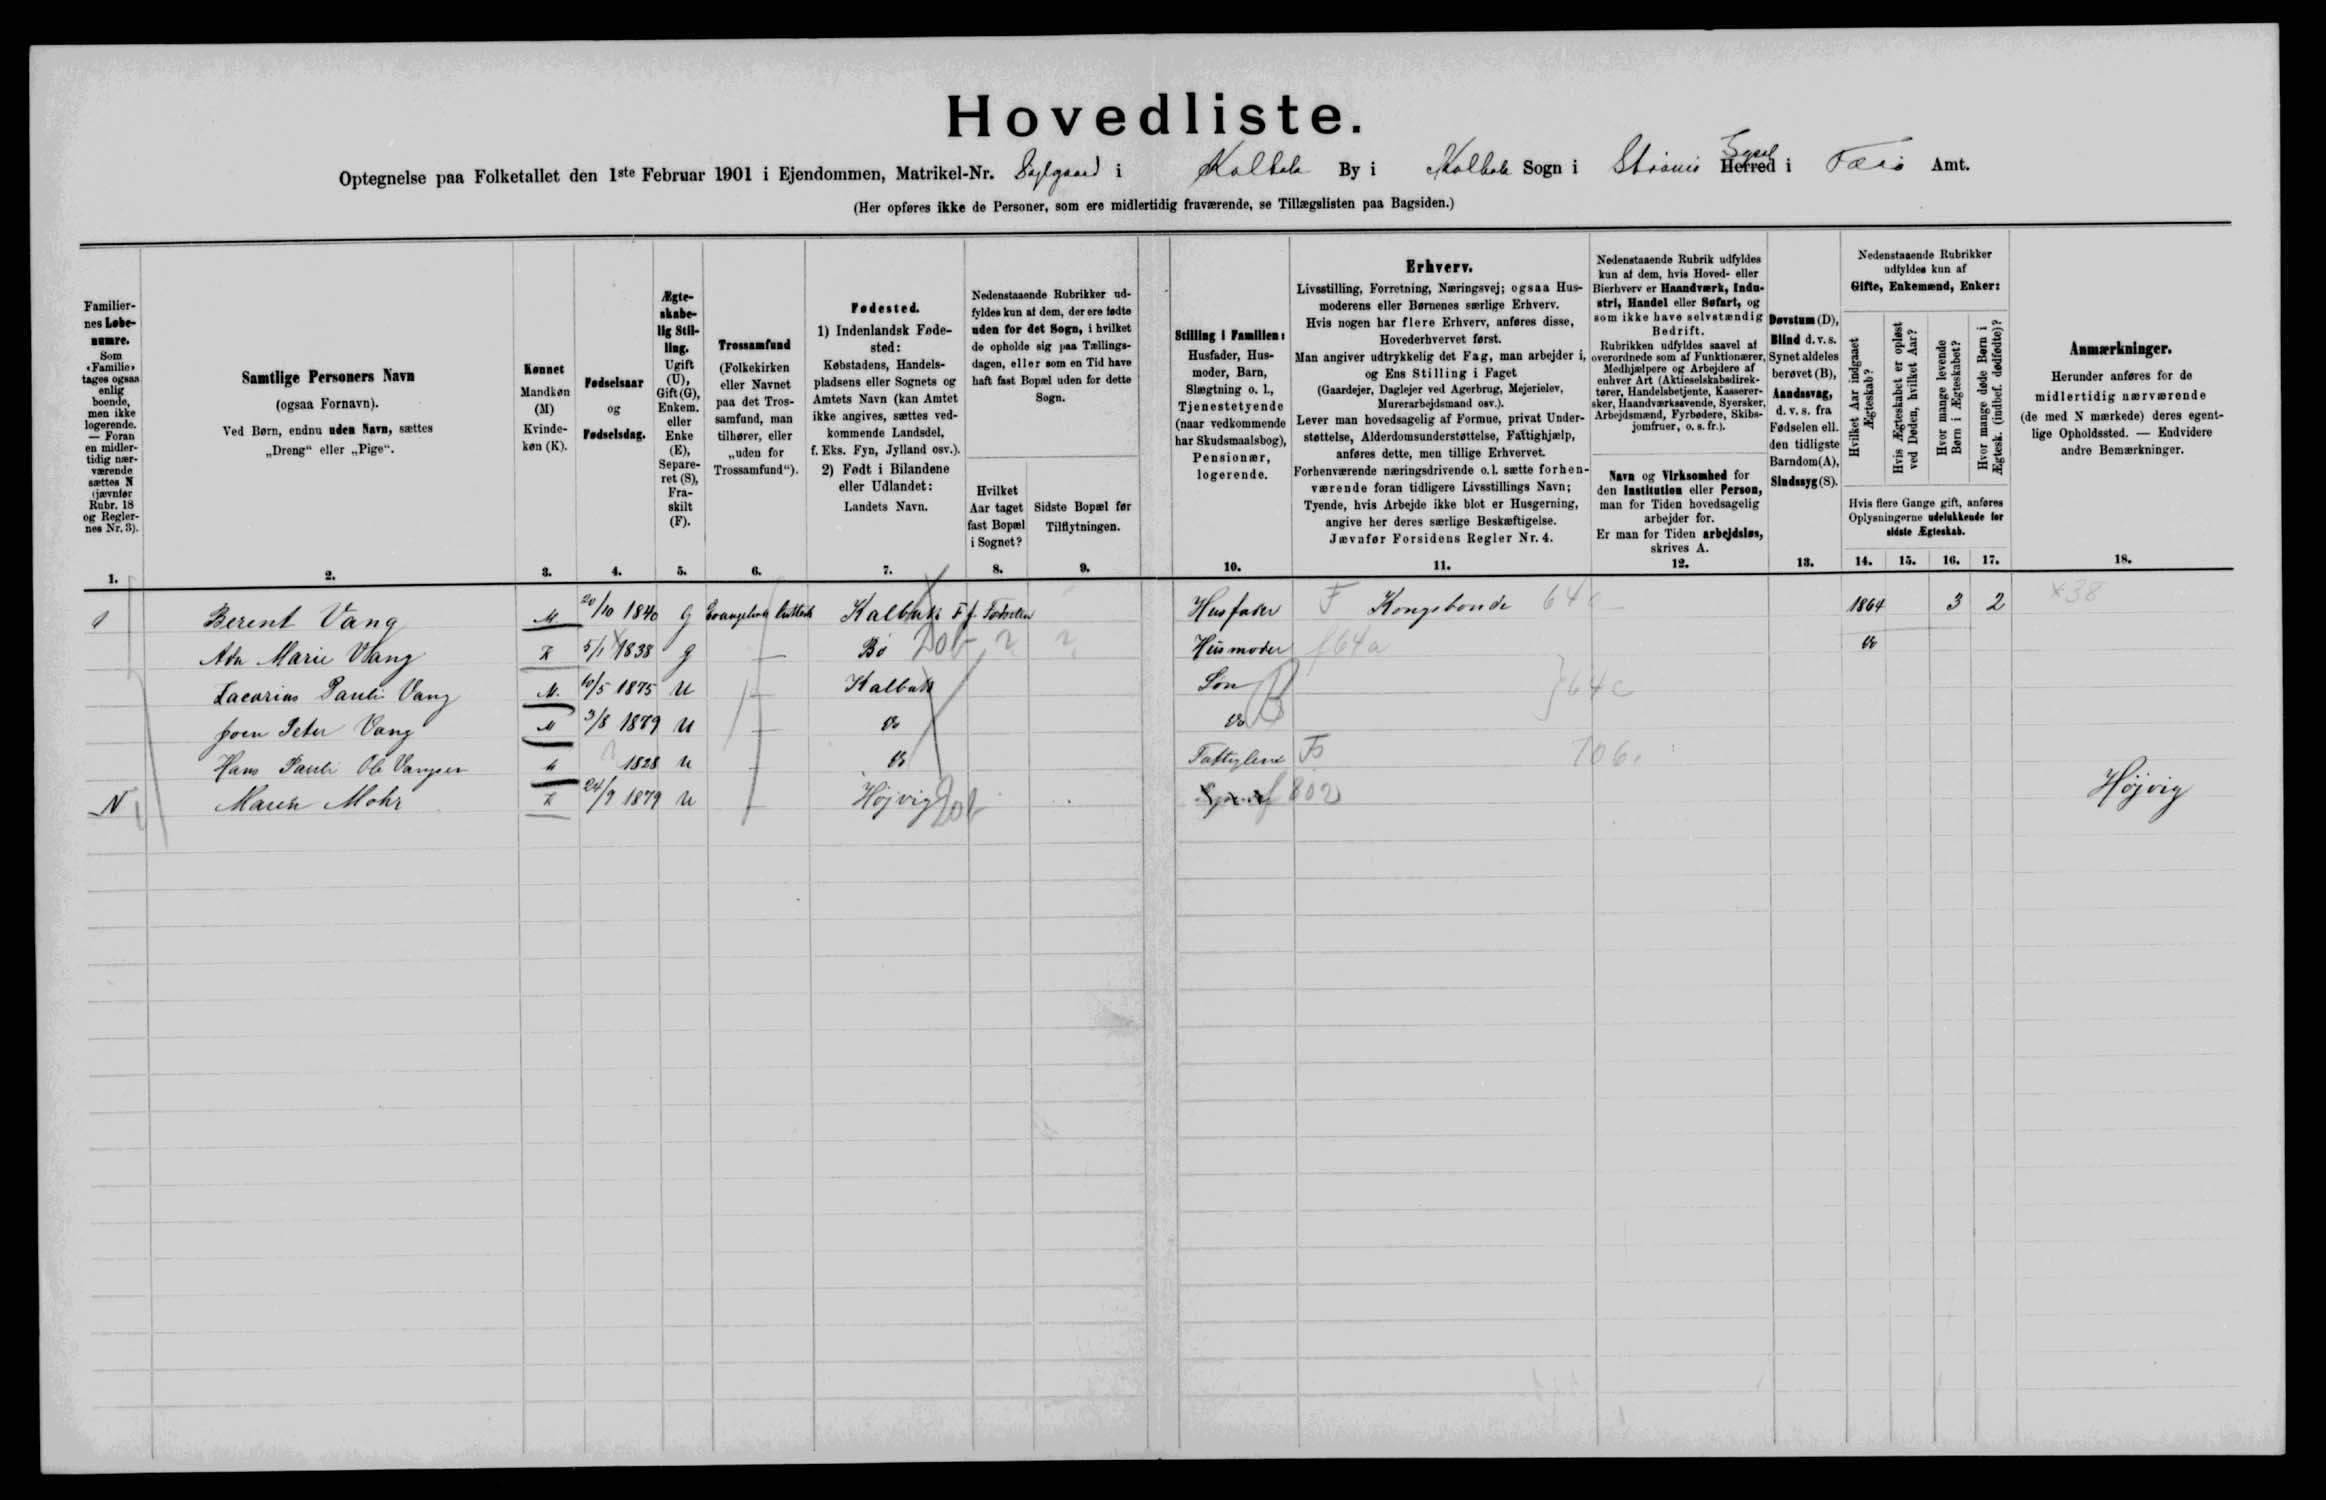 Hovedliste.
Optegnelse paa Folketallet den 1ste Februar 1901 i Ejendommen, Matrikel-Nr. i Kalbak By i Kalbak Sogn i Strömö Herred Sysel i Færö Amt.
(Her opføres ikke de Personer, som ere midlertidig fraværende, se Tillægslisten paa Bagsiden.)
Familier-
nes Løbe-
numre.
Som
«Familie»
tages ogsaa
enlig
boende,
men ikke
logerende.
— Foran
en midler-
tidig nær-
værende
sættes N
(jævnfør
Rubr. 18
og Regler-
nes Nr. 3).
Samtlige Personers Navn
(ogsaa Fornavn).
Ved Børn, endnu uden Navn, sættes
„Dreng“ eller „Pige“.
Kønnet
Mandkøn
(M)
Kvinde-
køn (K).
Fødselsaar
og
Fødselsdag.
Ægte-
skabe-
lig Stil-
ling.
Ugift
(U),
Gift (G),
Enkem.
eller
Enke
(E),
Separe-
ret (S),
Fra-
skilt
(F).
Trossamfund
(Folkekirken
eller Navnet
paa det Tros-
samfund, man
tilhører, eller
„uden for
Trossamfund“).
Fødested.
1) Indenlandsk Føde-
sted:
Købstadens, Handels-
pladsens eller Sognets og
Amtets Navn (kan Amtet
ikke angives, sættes ved-
kommende Landsdel,
f. Eks. Fyn, Jylland osv.).
2) Født i Bilandene
eller Udlandet:
Landets Navn.
Nedenstaaende Rubrikker ud-
fyldes kun af dem, der ere fødte
uden for det Sogn, i hvilket
de opholde sig paa Tællings-
dagen, eller som en Tid have
haft fast Bopæl uden for dette
Sogn.
Hvilket
Aar taget
fast Bopæl
i Sognet?
Sidste Bopæl før
Tilflytningen.
Stilling i Familien:
Husfader, Hus-
moder, Barn,
Slægtning o. l.,
Tjenestetyende
(naar vedkommende
har Skudsmaalsbog),
Pensionær,
logerende.
Erhverv.
Livsstilling, Forretning, Næringsvej; ogsaa Hus-
moderens eller Børnenes særlige Erhverv.
Hvis nogen har flere Erhverv, anføres disse,
Hovederhvervet først.
Man angiver udtrykkelig det Fag, man arbejder i,
og Ens Stilling i Faget
(Gaardejer, Daglejer ved Agerbrug, Mejerielev,
Murerarbejdsmand osv.).
Lever man hovedsagelig af Formue, privat Under-
støttelse, Alderdomsunderstøttelse, Fattighjælp,
anføres dette, men tillige Erhvervet.
Forhenværende næringsdrivende o. l. sætte forhen-
værende foran tidligere Livsstillings Navn;
Tyende, hvis Arbejde ikke blot er Husgerning,
angive her deres særlige Beskæftigelse.
Jævnfør Forsidens Regler Nr. 4.
Nedenstaaende Rubrik udfyldes
kun af dem, hvis Hoved- eller
Bierhverv er Haandværk, Indu-
stri, Handel eller Søfart, og
som ikke have selvstændig
Bedrift.
Rubrikken udfyldes saavel af
overordnede som af Funktionærer,
Medhjælpere og Arbejdere af
enhver Art (Aktieselskabsdirek-
tører, Handelsbetjente, Kasserer-
sker, Haandværkssvende, Syersker,
Arbejdsmænd, Fyrbødere, Skibs-
jomfruer, o. s. fr.).
Navn og Virksomhed for
den Institution eller Person,
man for Tiden hovedsagelig
arbejder for.
Er man for Tiden arbejdsløs,
skrives A.
Døvstum (D),
Blind d. v. s.
Synet aldeles
berøvet (B),
Aandssvag,
d. v. s. fra
Fødselen ell.
den tidligste
Barndom (A),
Sindssyg (S).
Nedenstaaende Rubrikker
udfyldes kun af
Gifte, Enkemænd, Enker:
Hvilket Aar indgaaet
Ægteskab?
Hvis Ægteskabet er opløst
ved Døden, hvilket Aar?
Hvor mange levende
Børn i Ægteskabet?
Hvor mange døde Børn i
Ægtesk. (indbef. dødfødte)?
Hvis flere Gange gift, anføres
Oplysningerne udelukkende for
sidste Ægteskab.
Anmærkninger.
Herunder anføres for de
midlertidig nærværende
(de med N mærkede) deres egent-
lige Opholdssted. — Endvidere
andre Bemærkninger.
1. 2. 3. 4. 5. 6. 7. 8. 9. 10. 11. 12. 13. 14. 15. 16. 17. 18.
1 Berent Vang M 20/10 1840 G Kalbak Husfader F Kongsbonde 64 1864 3 2 ×38
Marie Vang K 5/1 1838 G Bö ? ? Husmoder f64a do
Zacarias Pauli Vang M. 10/5 1875 U Kalbak Sön B }64c
Peter Vang M 3/8 1879 U do do
Hans Pauli Ole Vangsen M 1828 U do Fs 706
N Maren Mohr K 24/9 1879 U Höjvig f802 Höjvig